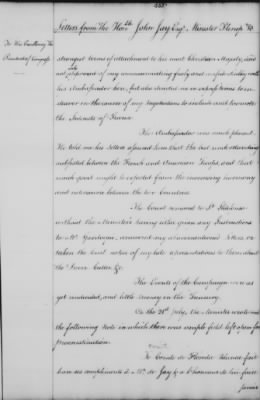 Letters from The Hon. John Jay Esq. Minister Plenipo. &c.
To His Excellency The
President of Congress
strongest terms of attachment to his most Christian Majesty, and
not only approved of my communicating freely and confidentially with
his Ambassador here, but also directed me in express terms to en-
deavor in the course of my Negotiations to include and promote
the Interests of France.
The Ambassador was much pleased.
He told me his Letters assured him that the best understanding
subsisted between the French and American Troops, and that
much good might be expected from the increasing harmony
and intercourse between the two Countries.
The Court removed to St. Ildefonso
without the Minister's having either given any Instructions
to Mr. Gardoqui, answered my abovementioned Letters or
taken the least notice of my late applications to them about
the Dover Cutter &c.
The Events of the Campaign were as
yet undecided, and little money in the Treasury.
On the 21st July, the Minister wrote me
the following Note in which there was ample field left open for
procrastination.
"The Conde de Florida Blanca
has compliments to Mr. Jay &